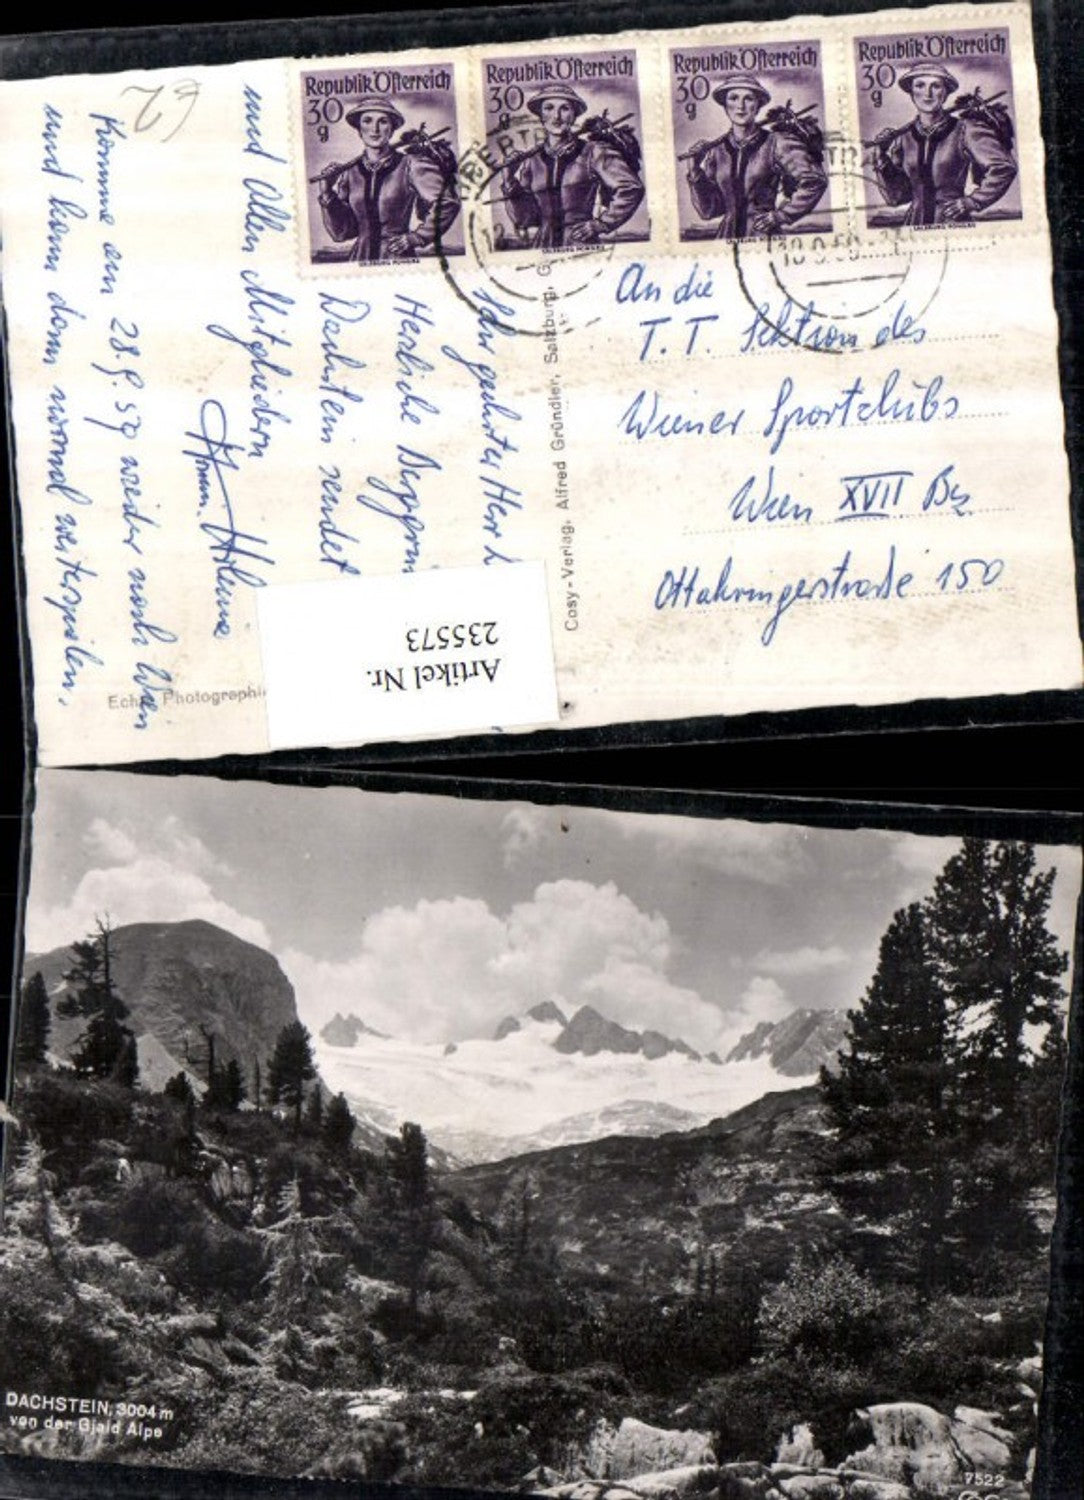 Republik Österreich
30 g
SALZBURG, PONGAU
Republik Österreich
30 g
SALZBURG, PONGAU
Republik Österreich
30 g
SALZBURG, PONGAU
Republik Österreich
30 g
SALZBURG, PONGAU
OBERTR
OBERTR
An die
T. T. Sektion des
Wiener Sportclubs
Wien XVII Bez
Ottakringerstraße 150
Cosy-Verlag, Alfred Gründler, Salzburg, G
Sehr geehrter Herr
Herzliche
Dachstein sendet
und Allen Mitgliedern
Komme am 28.9.59 wieder nach Wien
und kann dann normal weiterspielen.
Echte Photographie
Artikel Nr.
235573
DACHSTEIN, 3004 m
von der Gjaid Alpe
7522